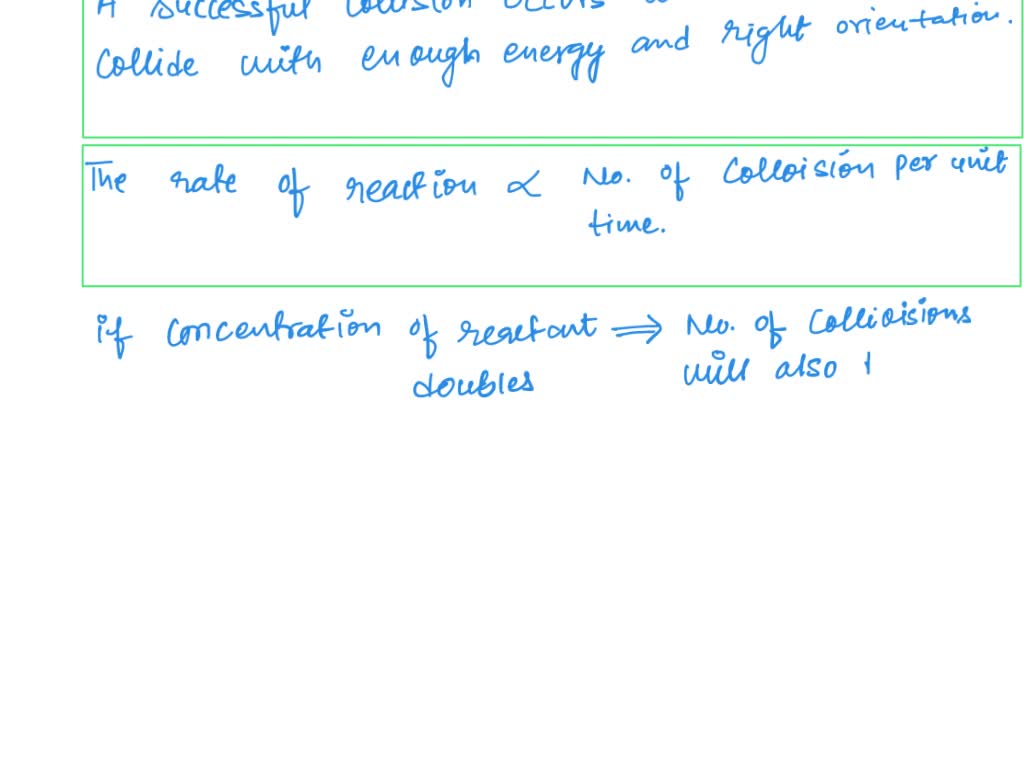 A successful collision occurs
collide with enough energy and right orientation.
The rate of reaction ∝ No. of Colloision per unit
time.
if concentration of reactant ⟹ No. of Collioisions
doubles will also